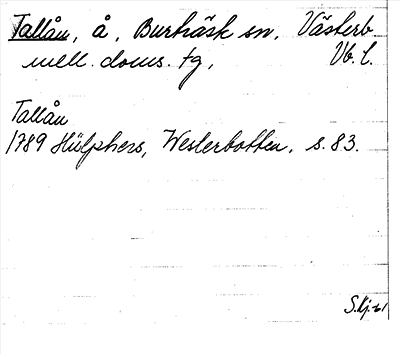 Tallån, å, Burträsk sn, Västerb.
mell. doms. tg, Vb. l.
Tallån
1789 Hülphers, Westerbotten, s. 83.
S.Kj-61